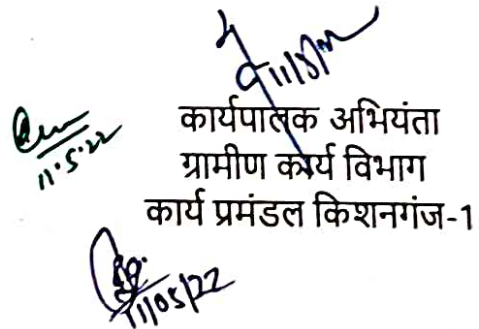 11/5/22
कार्यपालक अभियंता
11.5.22
ग्रामीण कार्य विभाग
कार्य प्रमंडल किशनगंज-1
11/05/22